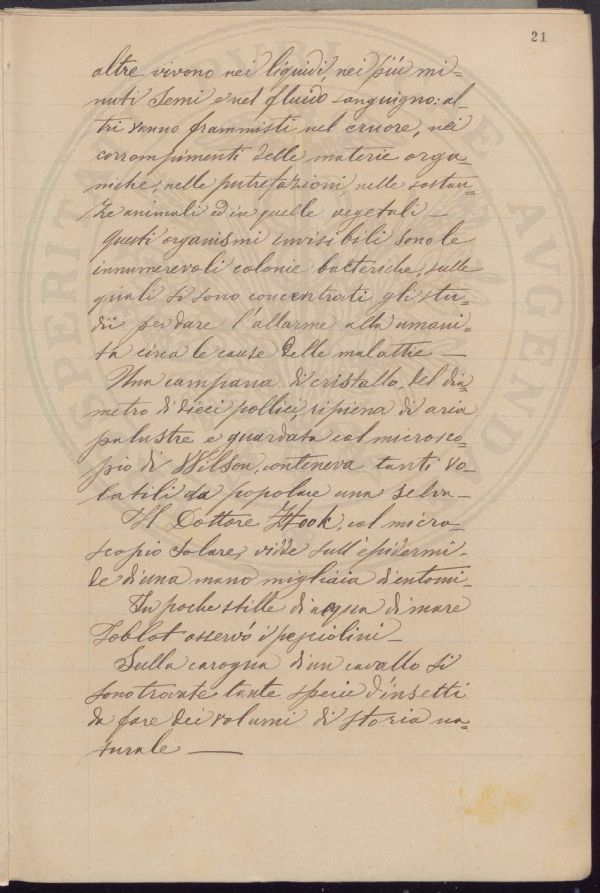 21
altre vivono nei liquidi, nei più mi=
nuti semi e nel fluido sanguigno: al=
tri vanno frammisti nel cruore, nei
corrompimenti delle materie orga
niche, nelle putrefazioni, nelle sostan=
ze animali ed in quelle vegetali —
Questi organismi invisibili sono le
innumerevoli colonie batteriche, sulle
quali si sono concentrati gli stu=
dii per dare l'allarme alla umani=
tà circa le cause delle malattie —
Una campana di cristallo, del dia=
metro di dieci pollici, ripiena di aria
palustre e guardata col microsco=
pio di Wilson, conteneva tanti vo=
latili da popolare una selva —
Il Dottore Hook, col micro=
scopio solare, vidde sull'epidermi=
de di una mano migliaia d'entomi —
In poche stille di acqua di mare
Joblot osservò i pesciolini —
Sulla carogna di un cavallo si
sono trovate tante specie d'insetti
da fare dei volumi di storia na=
turale —
PERITA
AVGENDA